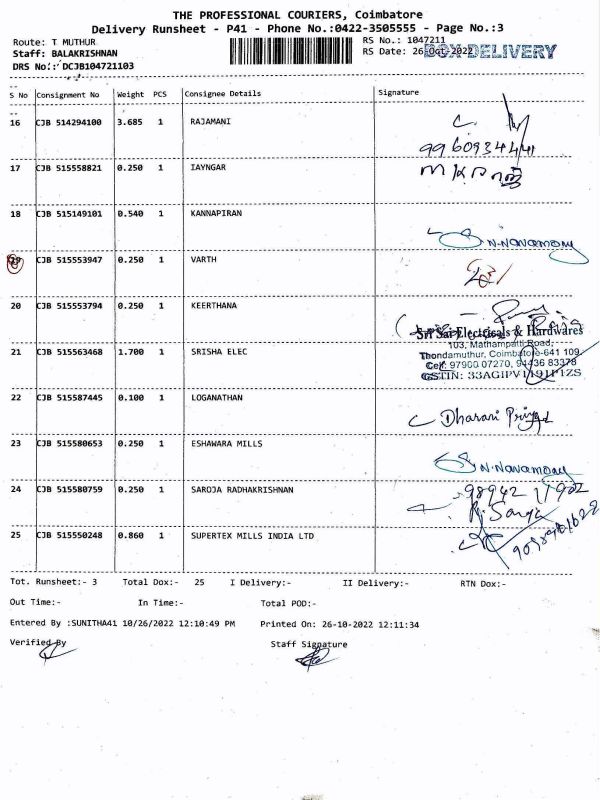 THE PROFESSIONAL COURIERS, Coimbatore
Delivery Runsheet - P41 - Phone No.:0422-3505555 - Page No.:3
Route: T MUTHUR
RS No.: 1047211
Staff: BALAKRISHNAN
RS Date: 26-Oct-2022 BOX DELIVERY
DRS No.: DCJB104721103
S No Consignment No Weight PCS Consignee Details Signature
16 CJB 514294100 3.685 1 RAJAMANI
17 CJB 515558821 0.250 1 IAYNGAR
18 CJB 515149101 0.540 1 KANNAPIRAN N.Navamony
19 CJB 515553947 0.250 1 VARTH
20 CJB 515553794 0.250 1 KEERTHANA
Sri Sai Electricals & Hardwares
21 CJB 515563468 1.700 1 SRISHA ELEC
103, Mathampatti Road,
Thondamuthur, Coimbatore-641 109.
Cell: 97900 07270, 94436 83378
GSTIN: 33AGIPV1191P1ZS
22 CJB 515587445 0.100 1 LOGANATHAN
Dharani Priya
23 CJB 515580653 0.250 1 ESHAWARA MILLS
N.Navamony
24 CJB 515580759 0.250 1 SAROJA RADHAKRISHNAN
25 CJB 515550248 0.860 1 SUPERTEX MILLS INDIA LTD
Tot. Runsheet:- 3 Total Dox:- 25 I Delivery:- II Delivery:- RTN Dox:-
Out Time:- In Time:- Total POD:-
Entered By :SUNITHA41 10/26/2022 12:10:49 PM Printed On: 26-10-2022 12:11:34
Verified By Staff Signature